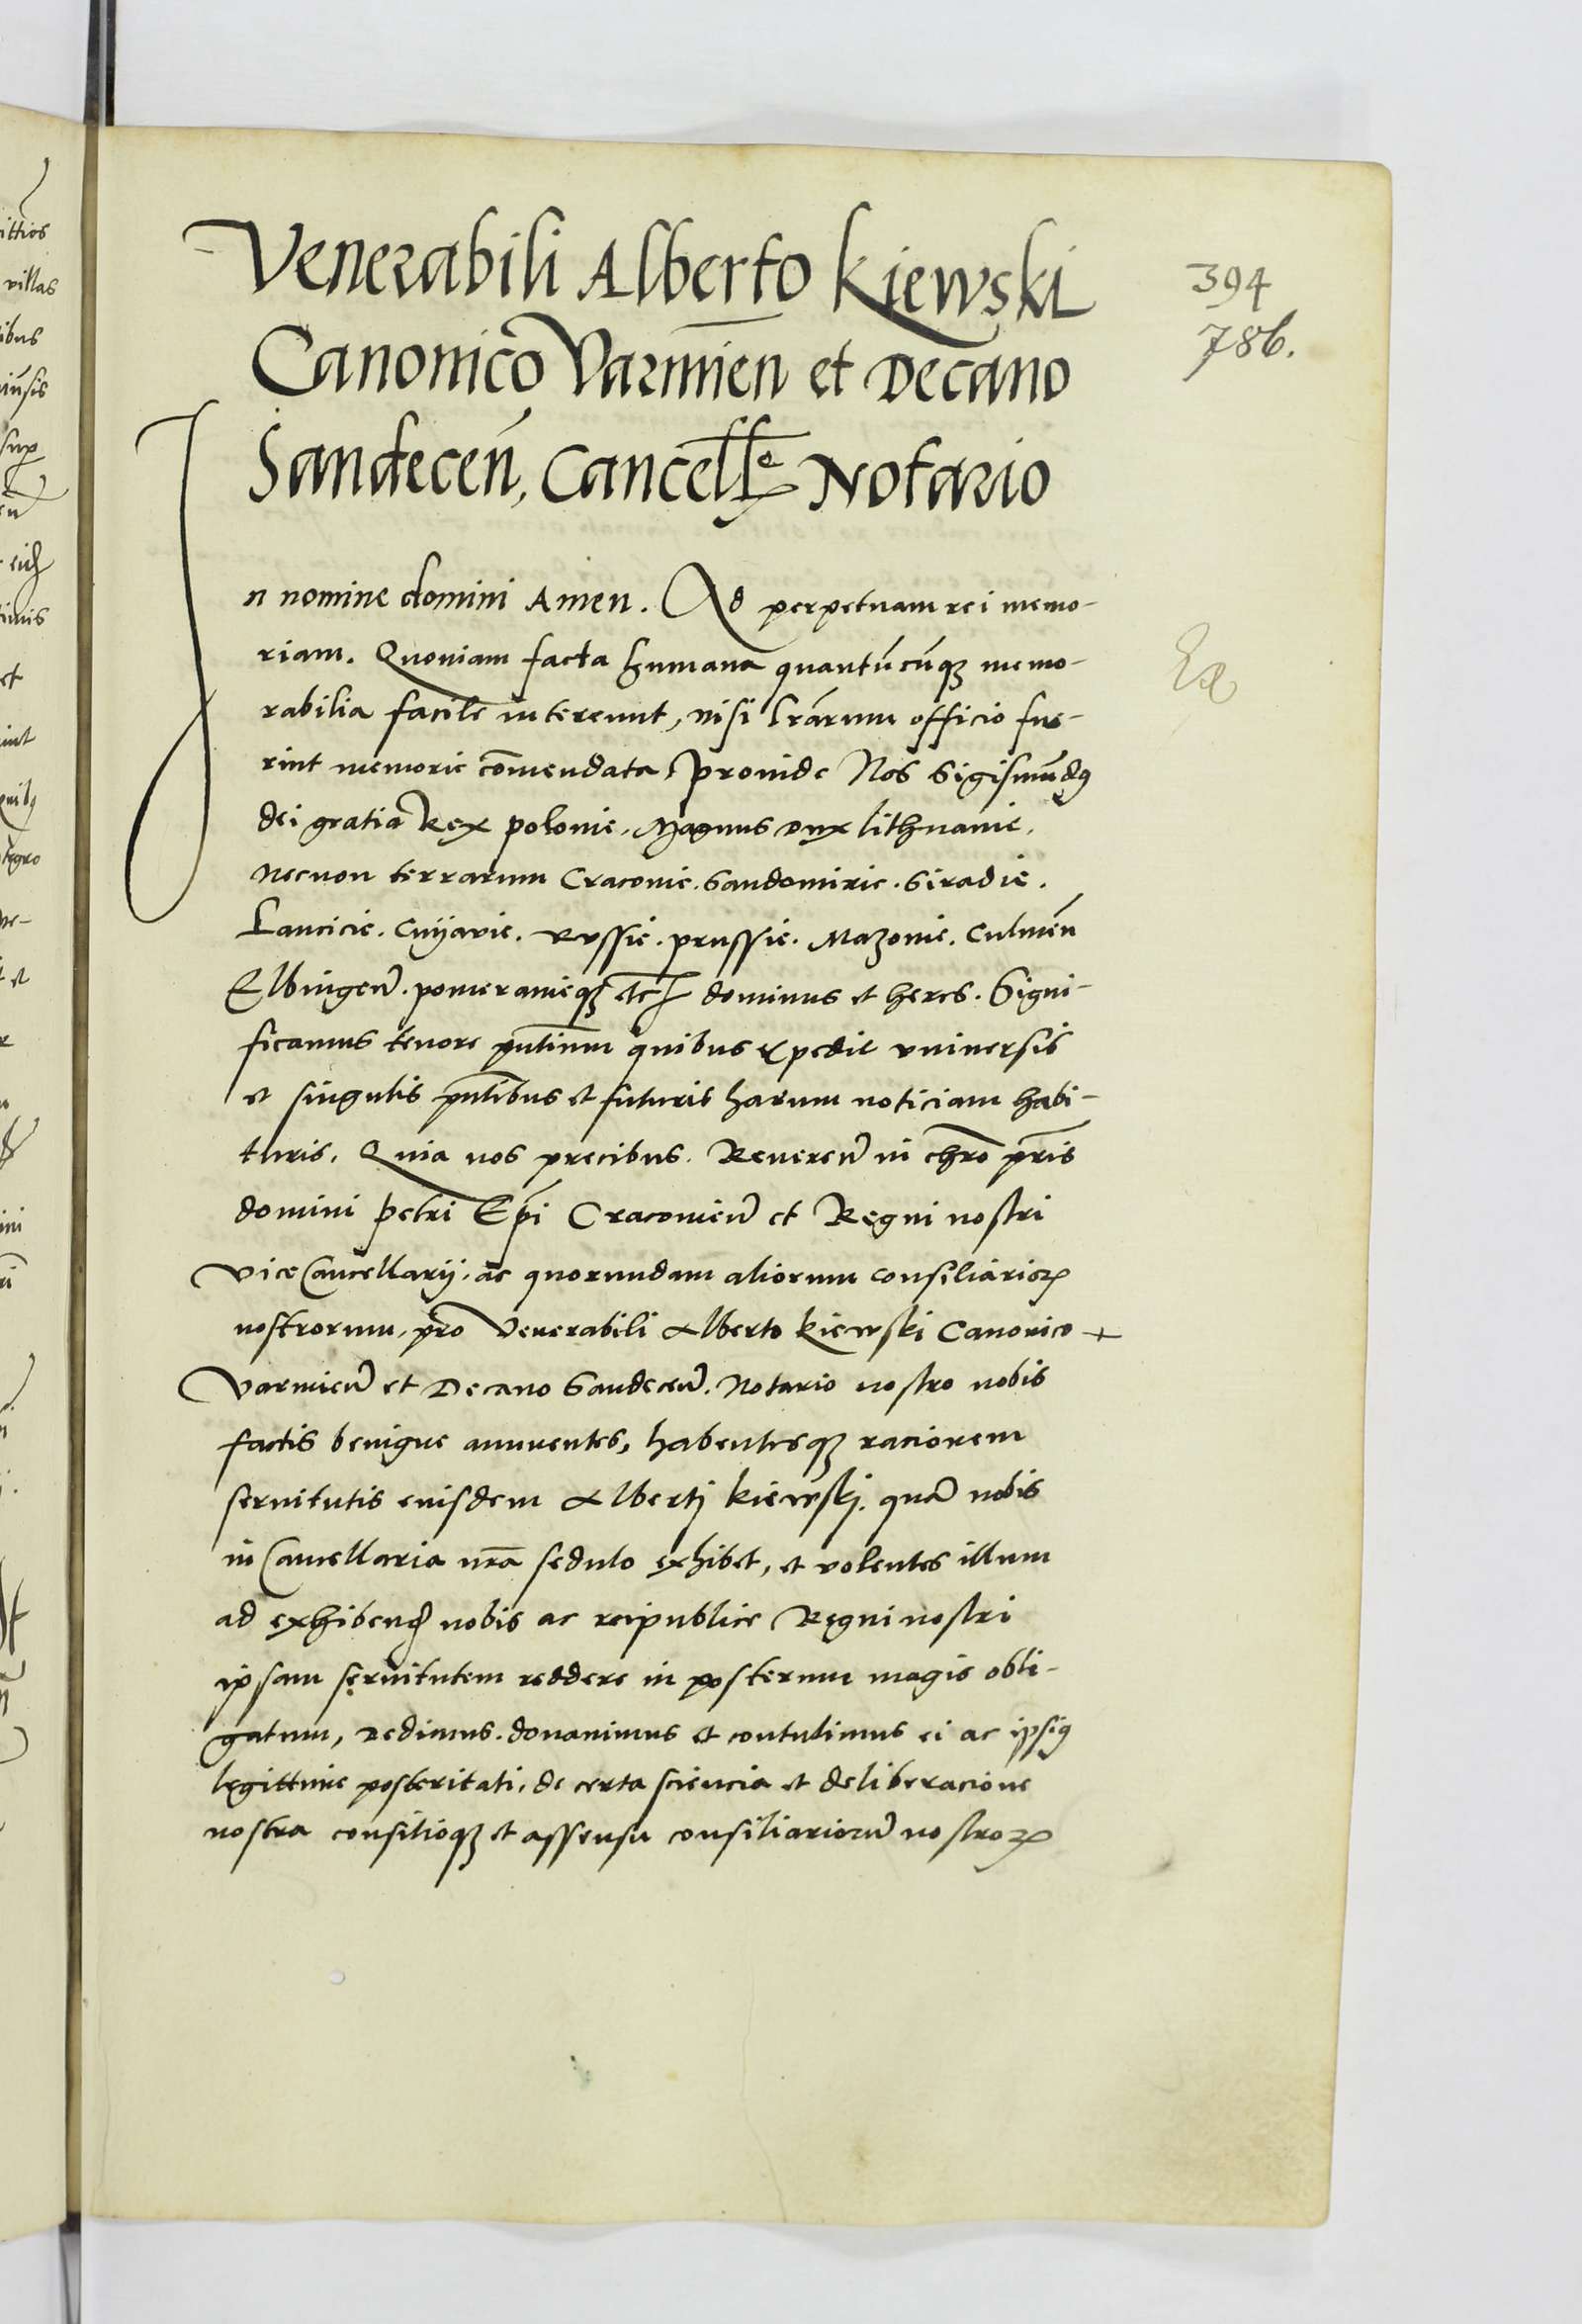 Venerabili Alberto Kiewski
Canonico Varmien̄ et Decano
Sandecen̄, Cancell͠e Notario
394
786.
In nomine domini Amen. Ad perpetuam rei memo-
riam. Quoniam facta humana quantūcūqȝ memo-
rabilia facile intereunt, nisi lr̄arum officio fue-
rint memorie com̄endata, Proinde Nos Sigismūdꝯ
dei gratia Rex polonie, Magnus Dux lithuanie,
Necnon terrarum Craconie. Sandomirie. Siradie.
Lancicie. Cuijavie. Russie. prussie. Mazovie. Culmen̄
Elbingen̄. pomeranieqȝ etc̄ dominus et heres. Signi-
ficamus tenore pn̄tium quibus expedit universis
et singulis pn̄tibus et futuris harum noticiam habi-
turis. Quia nos precibus. Reveren̄ in chr̄o pr̄is
domini Petri Ep̄i Cracovien̄ et Regni nostri
ViceCancellarij. ac quorundam aliorum consiliarioꝝ
nostrorum, pro Venerabili Alberto Kiewski Canonico
Varmien̄ et Decano Sandecen̄. Notario nostro nobis
factis benigne annuentes, habentesqȝ racionem
servitutis eiusdem Albertj Kiewskj. quā nobis
in Cancellaria nr̄a sedulo exhibet, et volentes illum
ad exhibend̄ nobis ac reipublice Regni nostri
ipsam servitutem reddere in posterum magis obli-
gatum, Dedimus. donavimus et contulimus ei ac ipsiꝯ
legittime posteritati, de certa sciencia et deliberacione
nostra consilioqȝ et assensu consiliariorū nostroꝝ